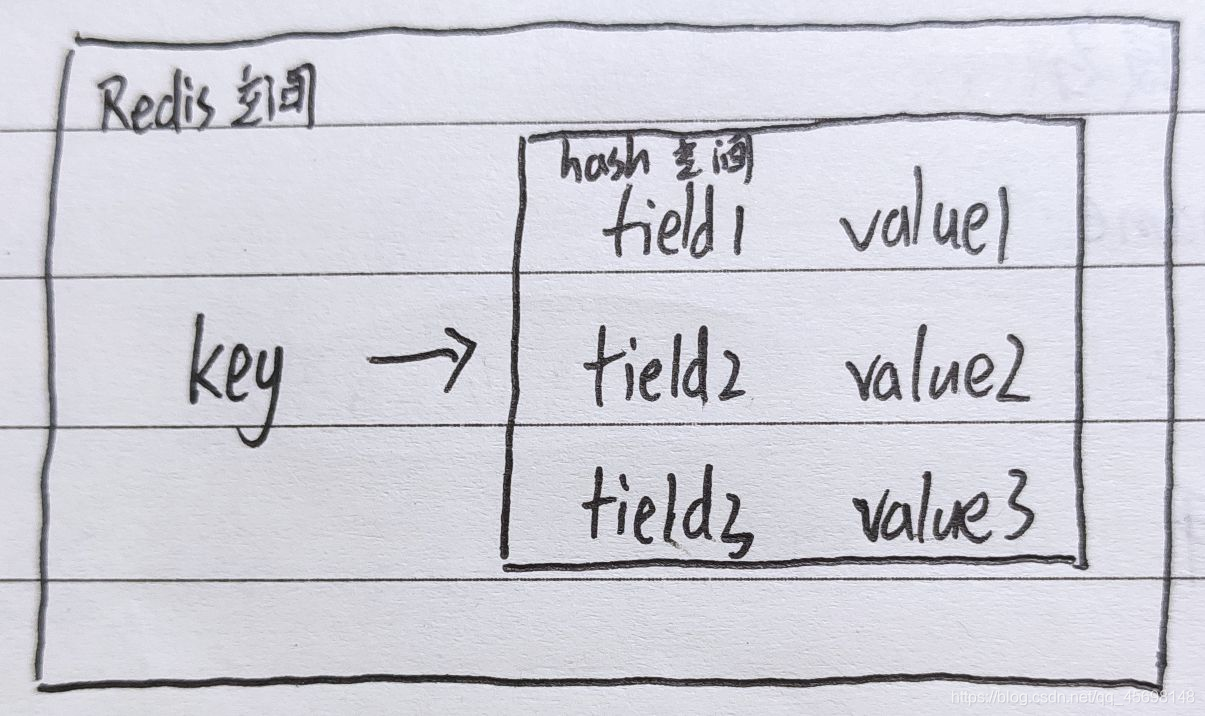 Redis 空间
hash 空间
field1 value1
key → field2 value2
field3 value3
https://blog.csdn.net/qq_45698148